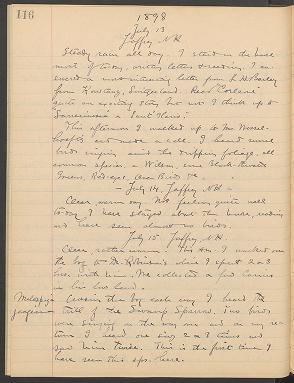 116
1898
July 13
Jaffrey, N.H.
Steady rain all day. I staid in the house
most of today, writing letters & reading. I an-
swered a most interesting letter from L. H. Bailey
from Switzerland. Read
quite an exciting story but not I think up to
"Saracinesca" & "Sant' Ilario."
This afternoon I walked up to Mr.
and made a call. I heard several
birds singing amid the dripping foliage, all
common species, as Wilson, Black-throated
Green, Red-eye, &c.
– July 14. Jaffrey NH –
Clear, warm day. Not feeling quite well
today I have stayed about the house, reading
and have seen almost no birds.
July 15. Jaffrey, NH.
Clear, rather warm. This I walked over
to Mr. Robinson's where I spent 2 or 3
hours with him. We collected a few
in his low land.
Melospiza
georgiana
Crossing the bog each way I heard the
trill of the Swamp Sparrow. Two birds
were singing on the way over and on my re-
turn I heard one sing 2 or 3 times and
saw him twice. This is the first time I
have seen this sps. here.